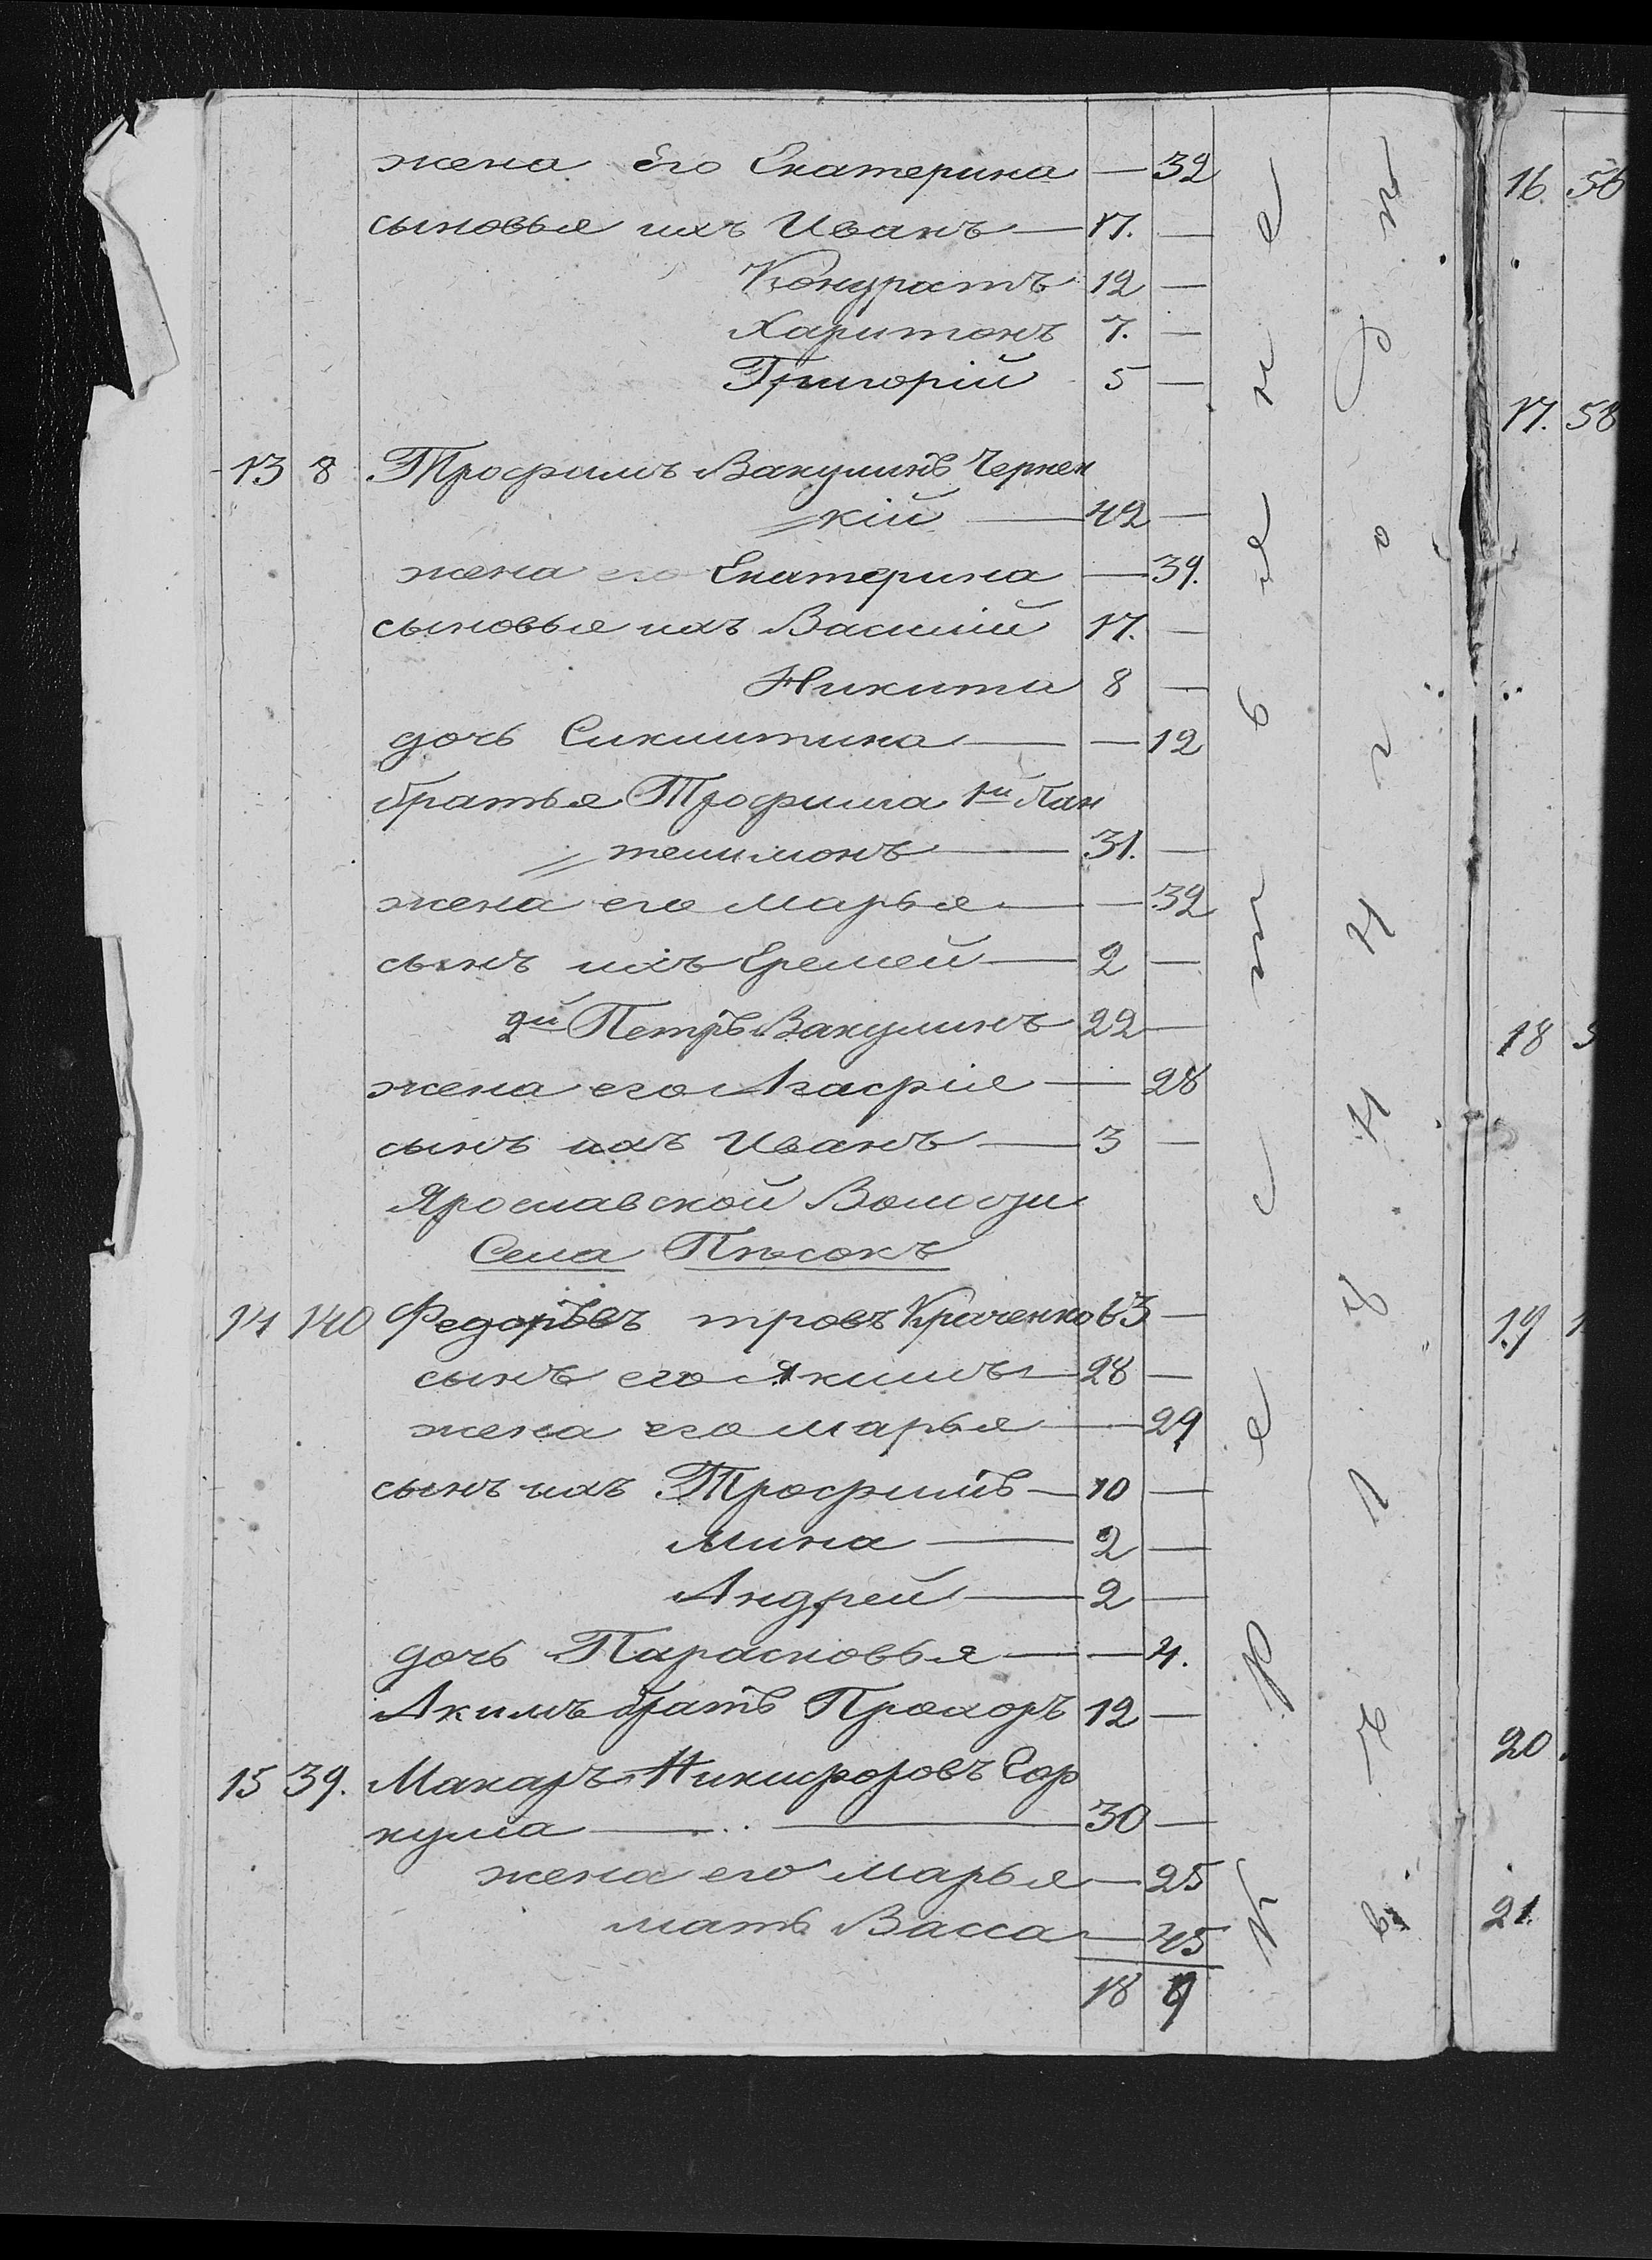 жена Его Екатерина — 32
сыновья ихъ Иванъ — 17. —
Кондратъ 12 —
Харитонъ 7. —
Григорій 5 —
13 8 Трофимъ Вакулинъ Чернец
кій — 42 —
жена его Екатерина — 39.
сыновья ихъ Василій 17. —
Никита 8 —
дочь Сиклитина — — 12
братья Трофима 1й Пан
телимонъ — 31. —
жена его Марья — — 32
сынъ ихъ Еремей — 2 —
2й Петръ Вакулинъ 22 —
жена его Агафія — 28
сынъ ихъ Иванъ — 3 —
Ярославской Волости
Села Пѣсокъ
14 140 тровъ 63 —
сынъ его Якимъ — 28 —
жена его Марья — 29
сынъ ихъ Трофимъ — 10 —
Мина — 2 —
Андрей — 2 —
дочь Парасковья — — 4.
Акимъ братъ Прохоръ 12 —
15 39. Макаръ Никифоровъ
кума — 30 —
жена его Марья — 25
мать Васса — 45
18 9
Крестьяне
16 56
17. 58
18
19
20
21.